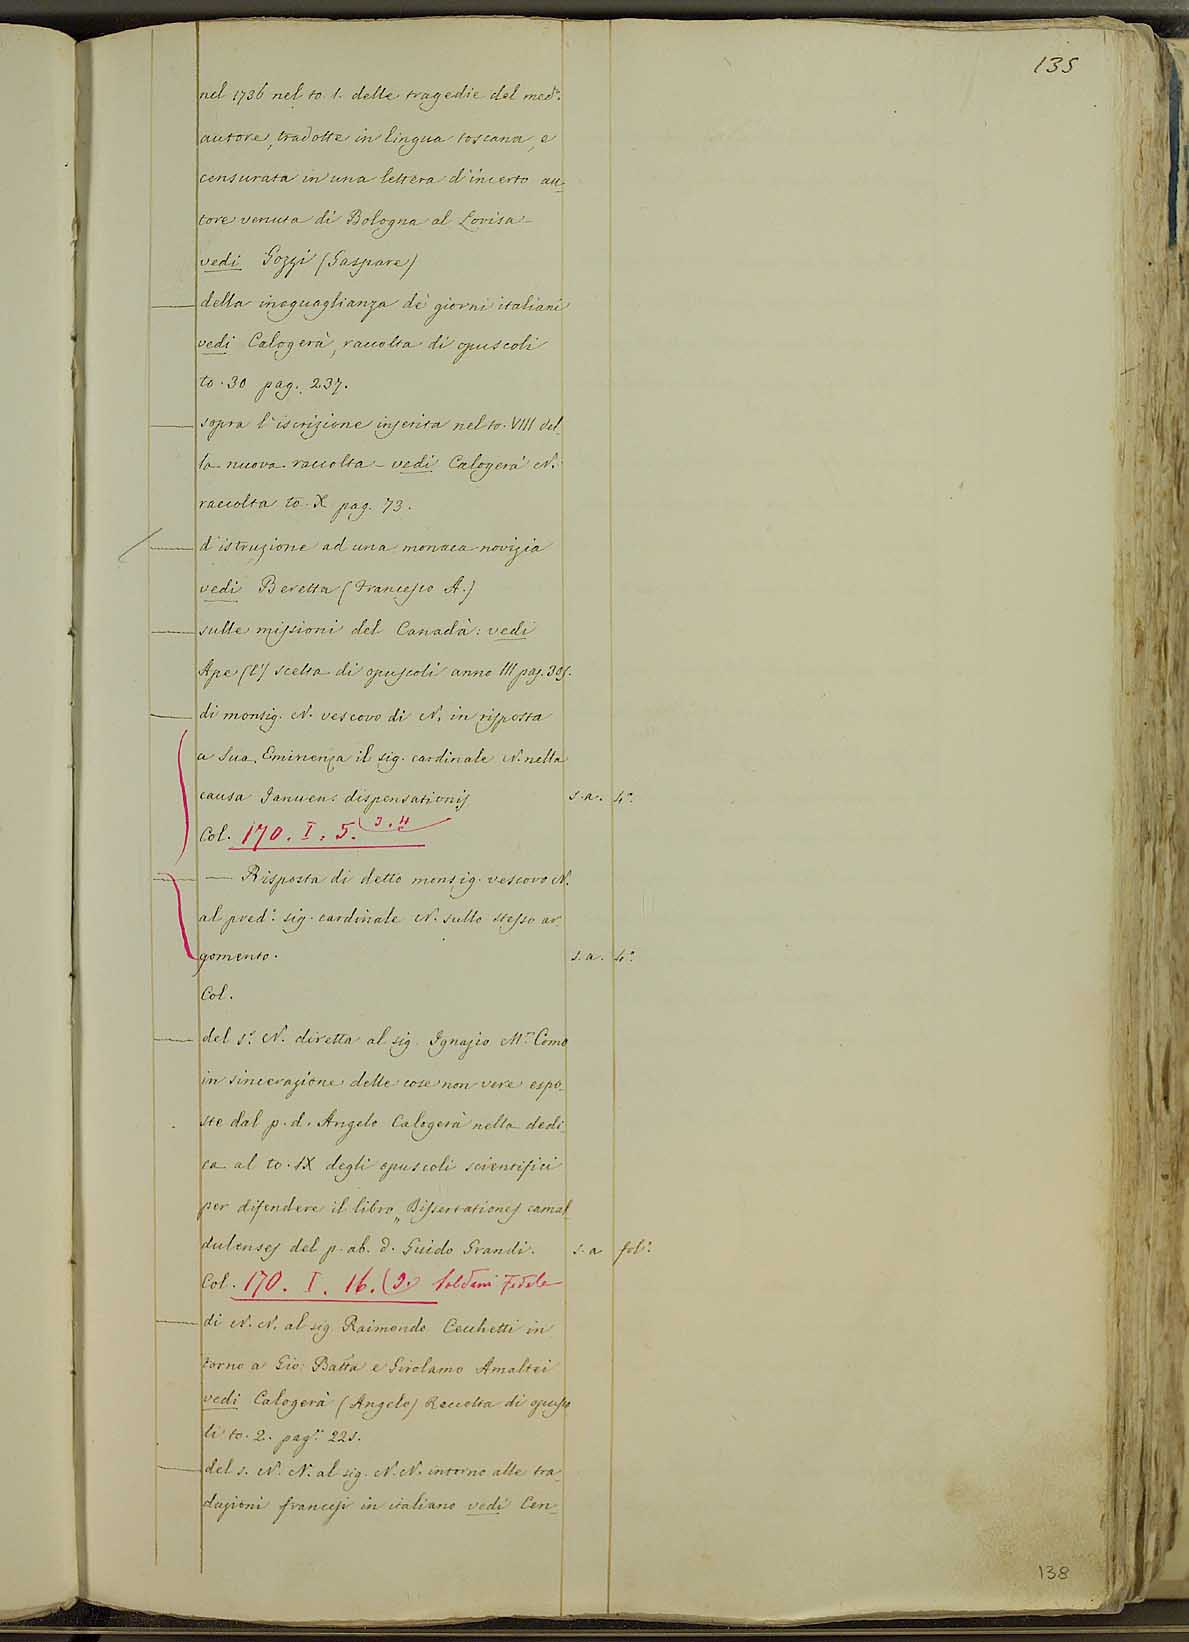 135
nel 1736 nel to. 1. delle tragedie del med.º
autore, tradotte in lingua toscana, e
censurata in una lettera d'incerto au-
tore venuta di Bologna al Lovisa -
vedi Gozzi (Gaspare)
— della inoguaglianza de' giorni italiani
vedi Calogerà, raccolta di opuscoli
to. 30 pag. 237.
— sopra l'iscrizione inserita nel to. VIII del-
la nuova raccolta - vedi Calogerà N.
raccolta to. X pag. 73.
— d'istruzione ad una monaca novizia
vedi Beretta (Francesco A.)
— sulle missioni del Canadà: vedi
Ape (l') scelta di opuscoli anno III pag. 305.
— di monsig. N. vescovo di N. in risposta
a Sua Eminenza il sig. cardinale N. nella
causa Januens dispensationis s.a. 4.º
Col. 170. I. 5. (3.4
— — Risposta di detto monsig. vescovo N.
al pred.º sig. cardinale N. sullo stesso ar-
gomento. s.a. 4.º
Col.
— del s.r N. diretta al sig. Ignazio M.ª Como
in sincerazione delle cose non vere espo-
ste dal p. d. Angelo Calogerà nella dedi-
ca al to. IX degli opuscoli scientifici
per difendere il libro „ Dissertationes camal-
dulenses del p. ab. d. Guido Grandi. s.a fol.º
Col. 170. I. 16. (2.) Soldani Fedele
— di N. N. al sig. Raimondo Cecchetti in
torno a Gio: Batta e Girolamo Amaltei
vedi Calogerà (Angelo) Raccolta di opusco
li to. 2. pag.ª 225.
— del s. N. N. al sig. N. N. intorno alle tra-
duzioni francesi in italiano vedi Cen-
138